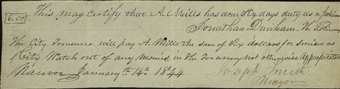 6.00 This may certify that A. Mills has done Six days duty as a
Jonathan Dunham H. P. Nauvoo
The City Treasurer will pay A. Mills the sum of Six dollars for services as
City Watch out of any monies in the Treasury not otherwise appropriated
Nauvoo January 14th 1844 Joseph Smith
Mayor